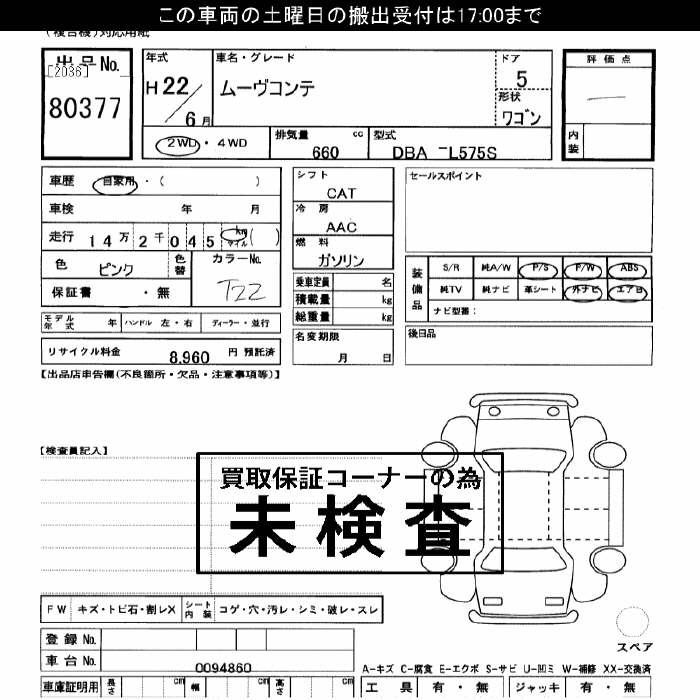 この車両の土曜日の搬出受付は17:00まで
(複合機)対応用紙
出品No.
[2036]
80377
年式
H22/6月
車名・グレード
ムーヴコンテ
ドア
5
形状
ワゴン
評価点
内装
2WD・4WD
排気量 cc
660
型式
DBA-L575S
車歴 自家用・( )
車検 年 月
走行 14万2千045 km マイル ( )
色 ピンク
色替
カラーNo.
T22
保証書 ・無
シフト
CAT
冷房
AAC
燃料
ガソリン
乗車定員 名
積載量 kg
総重量 kg
セールスポイント
装備品
S/R 純A/W P/S P/W ABS
純TV 純ナビ 革シート 外ナビ エアB
ナビ型番:
モデル年式 年 ハンドル 左・右 ディーラー・並行
リサイクル料金 8,960 円 預託済
名変期限
月 日
後日品
【出品店申告欄(不良箇所・欠品・注意事項等)】
【検査員記入】
買取保証コーナーの為
未検査
FW キズ・トビ石・割レX シート内装 コゲ・穴・汚レ・シミ・破レ・スレ
登録No.
車台No. 0094860
スペア
A-キズ C-腐食 E-エクボ S-サビ U-凹ミ W-補修 XX-交換済
車庫証明用 長さ cm 幅 cm 高さ cm
工具 有・無 ジャッキ 有・無